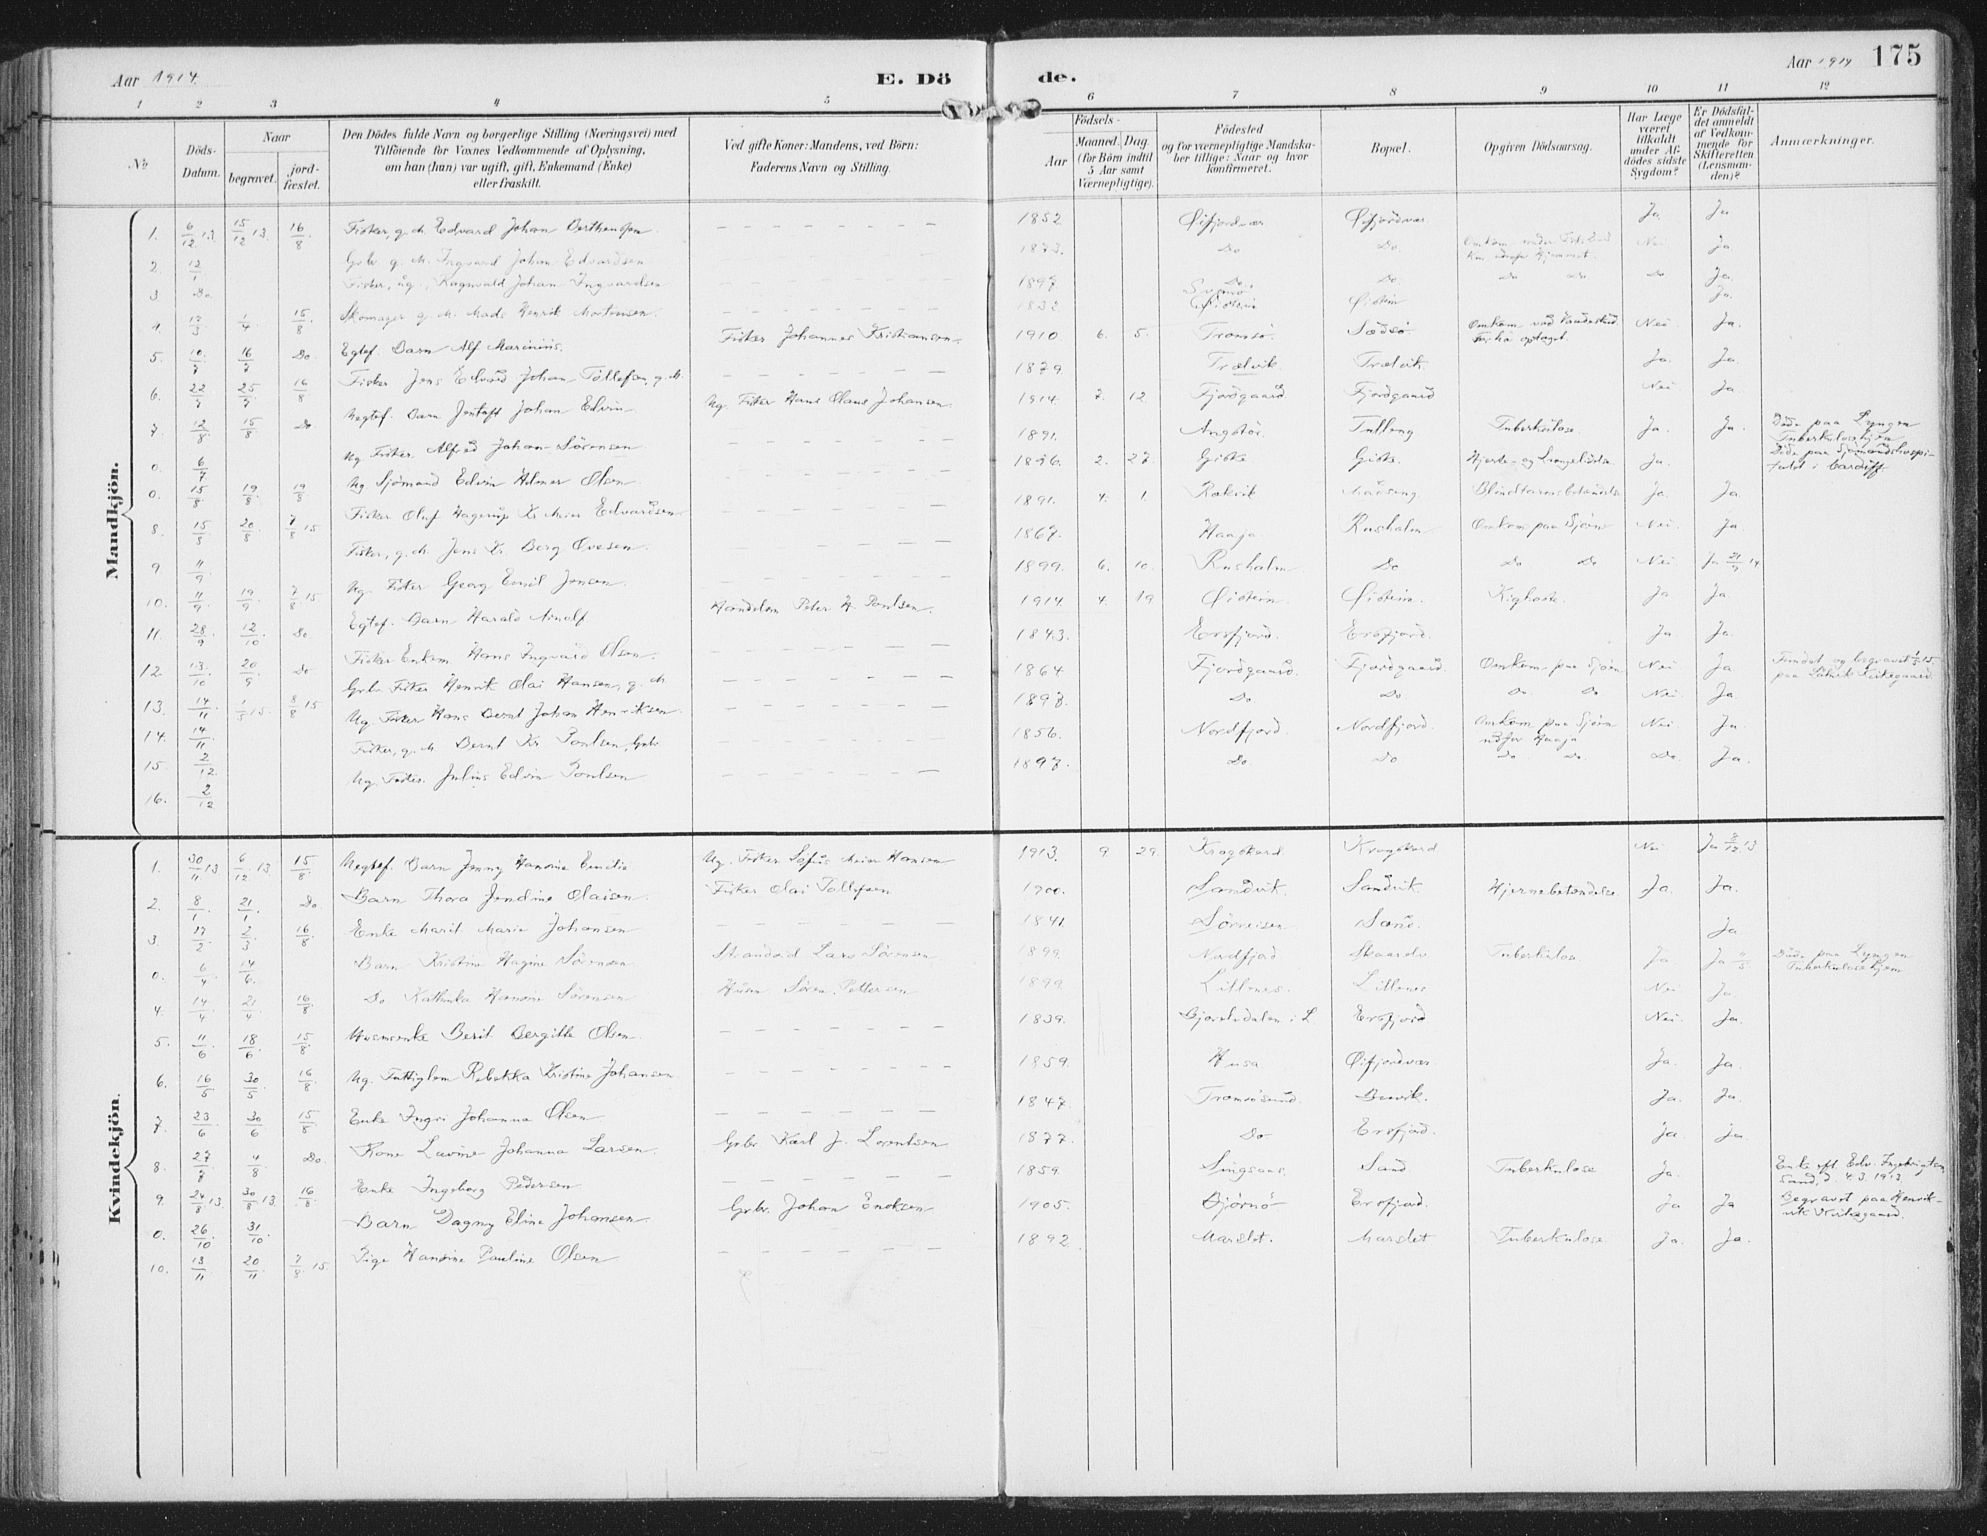 Aar 1914.
E. Dö
de.
Aar 1914
175
1 2 3 4 5 6 7 8 9 10 11 12
No
Döds-
Datum.
Naar
begravet.
jord-
fæstet.
Den Dödes fulde Navn og borgerlige Stilling (Næringsvei) med
Tilföiende for Voxnes Vedkommende af Oplysning,
om han (hun) var ugift, gift, Enkemand (Enke)
eller fraskilt.
Ved gifte Koner: Mandens, ved Börn:
Faderens Navn og Stilling.
Födsels-
Aar
Maaned. Dag.
(for Börn indtil
5 Aar samt
Værnepligtige).
Födested
og for værnepligtige Mandska-
ber tillige: Naar og hvor
konfirmeret.
Bopæl.
Opgiven Dödsaarsag.
Har Læge
været
tilkaldt
under Af-
dödes sidste
Sygdom?
Er Dödsfal-
det anmeldt
af Vedkom-
mende for
Skifteretten
(Lensman-
den)?
Anmærkninger.
Mandkjön.
1. 6/12 13 15/12 13. 16/8 Fisker, g. M. Edvard Johan Berthensen 1852 Øifjordvær Øifjordvær Ja Ja
2. 12/1 Gbr g. M. Ingvard Johan Edvardsen 1873. Do Do. Nei Ja
3 Do Fisker, ug., Ragnvald Johan Ingvardsen 1897 Do. Do. Do Do Do Ja.
4. 17/3 1/4 15/8 Skomager g. M. Mads Henrik Mortensen. 1832 Øistein Ja.
5. 10/7 16/7 Do Egtef. Barn Alf Marinius. Fisker Johannes Kristiansen 1910 6. 5. Tromsö. Sædsö Nei Ja.
6. 22/7 25/7 16/8 Fisker Jens Edvard Johan Tollefsen, g. M. 1879 Trælvik Trælvik Ja. Ja.
7. 12/8 15/8 Do Uegtef. Barn Jentoft Johan Edvin Ug. Fisker Hans Olaus Johansen 1914. 7. 12 Fjordgaard Fjordgaard Nei Ja.
0. 6/7 Ug Fisker Alfred Johan Sörensen 1891. Angstör Tulleng Tuberkulose Ja. Ja. Döde paa Lyngen Tuberkulosehjem
0. 15/8 19/8 19/8 Ug Sjömand Edvin Hilmer Olsen 1896. 2. 27 Giske Giske. Hjerte- og Lungelidelse Ja. Döde paa Sjömandshospi- talet i Cardiff
8. 15/8 20/8 7/8 15 Fisker Oluf Hagerup Kr. Meier Edvardsen 1891. 4. 1. Rækvik Blindtarmsbetændelse Ja. Ja.
9. 11/9 Fisker, g. M. Jens Kr. Berg Ovesen 1867. Haaja Rusholm Omkom paa Sjöen Nei Ja.
10. 11/9 19/9 7/8 15 Ug. Fisker Georg Emil Jensen 1899. 6. 10. Rusholm Do Do Do Nei Ja 21/9 14
11. 28/9 12/10 Do Egtef. Barn Harald Arnolf Handelsm Peter H. Paulsen. 1914. 4. 19. Øistein. Øistein. Kighoste Ja Ja.
12. 13/10 20/9 Do Fisker Enkem. Hans Ingvard Olsen. 1843. Ersfjord. Ersfjord. Ja. Ja.
13. 14/11 1/5 15. 8/8 15 Gbr Fisker Henrik Olai Hansen, g. M 1864 Fjordgaard. Fjordgaard. Omkom paa Sjöen Nei Ja Fundet og begravet 1/5 15. paa Kirkegaard.
14. 14/11 Ug. Fisker Hans Bernt Johan Henriksen 1893. Do Do. Do. Do Nei Ja
15. 2/12 Fisker, g. M Bernt Kr. Paulsen, Gbr 1856. Nordfjord. Nordfjord. Omkom paa Sjöen udfor Haaja Nei Ja
16. 2/12 Ug. Fisker Julius Edvin Paulsen 1893. Do. Do Do. Do. Do. Ja.
Kvindekjön.
1. 30/11 13 6/12 13 15/8 Uegtef. Barn Jenny Hansine Emilie Ug. Fisker Sofus Meier Hansen 1913. 9 29. Kragskard Kragskard Nei Ja 8/12 13
2. 8/1 21/1 Do Barn Thora Jendine Olaisen Fisker Olai Tollefsen 1900. Sandvik Sandvik Hjernebetændelse Ja. Ja.
3. 17/2 2/3 16/8 Enke Marit Marie Johansen 1841. Sörreisen Sand. Ja
0. 6/4 14/6. Barn Kristine Hagine Sörensen Strandsid Lars Sörensen 1899. Nordfjord Tuberkulose Ja Ja Döde paa Lyngen Tuberkulosehjem
4. 14/4 21/4. 16/8 Do Kathinka Hansine Sörensen Husm Sören Pettersen 1899. Litlenes Litlenes Nei Ja
5. 11/6 18/6 15/8 Husmenke Berit Bergitte Olsen 1839. Ersfjord Nei Ja.
6. 16/5 30/5 16/8 Ug. Fattiglem Rebekka Kristine Johansen 1859. Husa Øifjordvær. Ja. Ja.
7. 23/6 30/6 15/8 Enke Ingri Johanna Olsen 1847. Tromsösund. Ja. Ja.
8. 27/7 4/8 Do. Kone Lavine Johanna Larsen Gbr Karl J. Lorentsen 1877. Do Ersfjord. Ja. Ja.
9 24/8 13 30/8 13. 16/8 Enke Ingeborg Pedersen 1859. Singsaas. Sand Tuberkulose Ja. Enke eft. Edv. Ingebrigtsen Sand, d. 4.3.1913
0. 26/10 31/10 Barn Dagny Eline Johansen Gbr. Johan Enoksen 1905. Bjørnör Ersfjord. Ja Ja Begravet paa Henrik- vik Kirkegaard.
10. 13/11 20/11 7/8 15 Pige Hansine Pauline Olsen 1892 Marslet. Marslet Tuberkulose Ja. Ja.